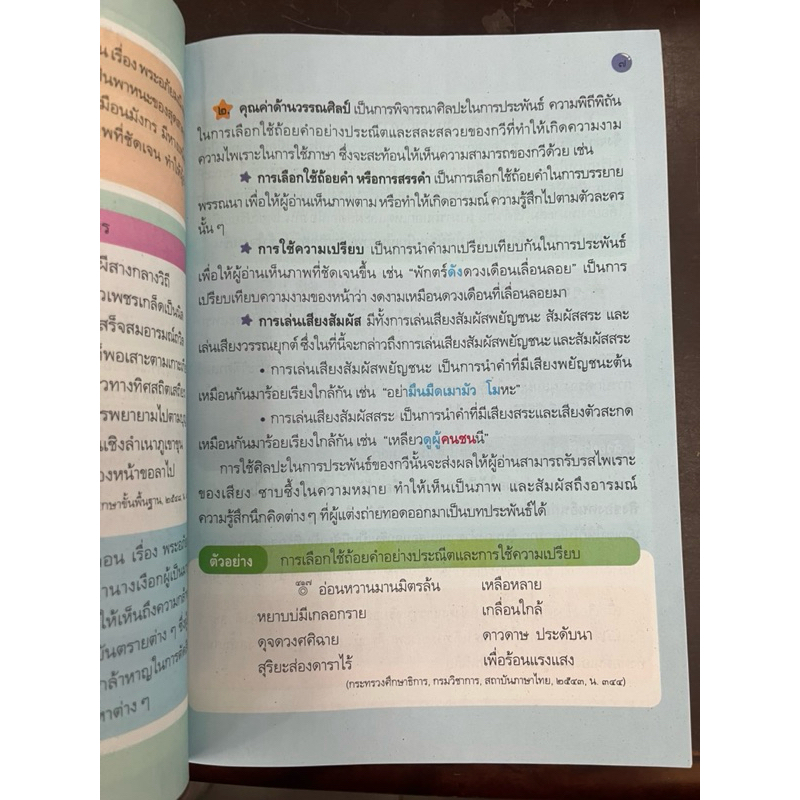 น เรื่อง พระอภัยมณี
ป็นพาหนะของสุด
มือนมังกร มีหาง
พที่ชัดเจน ทำให้
ร
ผีสางกลางวิถี
วเพชรเกล็ดเป็นนิล
สร็จสมอารมณ์
ก์พอเสาะตามเกาะ
วทางทิศสถิตเสถียร
รพยายามไปตาม
นเชิงลำเนาภูเขาขุน
องหน้าขอลาไป
กษาขั้นพื้นฐาน, ๒๕๔๔,
ตอน เรื่อง พระอภัย
านางเงือกผู้เป็น
ให้เห็นถึงความกล้า
ันตรายต่าง ๆ ซึ่ง
ล้าหาญในการตัด
หาต่าง ๆ
๗
๒. คุณค่าด้านวรรณศิลป์ เป็นการพิจารณาศิลปะในการประพันธ์ ความพิถีพิถัน
ในการเลือกใช้ถ้อยคำอย่างประณีตและสละสลวยของกวีที่ทำให้เกิดความงาม
ความไพเราะในการใช้ภาษา ซึ่งจะสะท้อนให้เห็นความสามารถของกวีด้วย เช่น
★ การเลือกใช้ถ้อยคำ หรือการสรรคำ เป็นการเลือกใช้ถ้อยคำในการบรรยาย
พรรณนา เพื่อให้ผู้อ่านเห็นภาพตาม หรือทำให้เกิดอารมณ์ ความรู้สึกไปตามตัวละคร
นั้น ๆ
★ การใช้ความเปรียบ เป็นการนำคำมาเปรียบเทียบกันในการประพันธ์
เพื่อให้ผู้อ่านเห็นภาพที่ชัดเจนขึ้น เช่น “พักตร์ดังดวงเดือนเลื่อนลอย” เป็นการ
เปรียบเทียบความงามของหน้าว่า งดงามเหมือนดวงเดือนที่เลื่อนลอยมา
★ การเล่นเสียงสัมผัส มีทั้งการเล่นเสียงสัมผัสพยัญชนะ สัมผัสสระ และ
เล่นเสียงวรรณยุกต์ ซึ่งในที่นี้จะกล่าวถึงการเล่นเสียงสัมผัสพยัญชนะ และสัมผัสสระ
• การเล่นเสียงสัมผัสพยัญชนะ เป็นการนำคำที่มีเสียงพยัญชนะต้น
เหมือนกันมาร้อยเรียงใกล้กัน เช่น “อย่ามืนมืดเมามัว โมหะ”
• การเล่นเสียงสัมผัสสระ เป็นการนำคำที่มีเสียงสระและเสียงตัวสะกด
เหมือนกันมาร้อยเรียงใกล้กัน เช่น “เหลียวดูผู้คนชนนี”
การใช้ศิลปะในการประพันธ์ของกวีนั้นจะส่งผลให้ผู้อ่านสามารถรับรสไพเราะ
ของเสียง ซาบซึ้งในความหมาย ทำให้เห็นเป็นภาพ และสัมผัสถึงอารมณ์
ความรู้สึกนึกคิดต่าง ๆ ที่ผู้แต่งถ่ายทอดออกมาเป็นบทประพันธ์ได้
ตัวอย่าง การเลือกใช้ถ้อยคำอย่างประณีตและการใช้ความเปรียบ
๏ อ่อนหวานมานมิตรล้น เหลือหลาย
หยาบบ่มีเกลอกราย เกลื่อนใกล้
ดุจดวงศศิฉาย ดาวดาษ ประดับนา
สุริยะส่องดาราไร้ เพื่อร้อนแรงแสง
(กระทรวงศึกษาธิการ, กรมวิชาการ, สถาบันภาษาไทย, ๒๕๔๓, น. ๓๔๔)